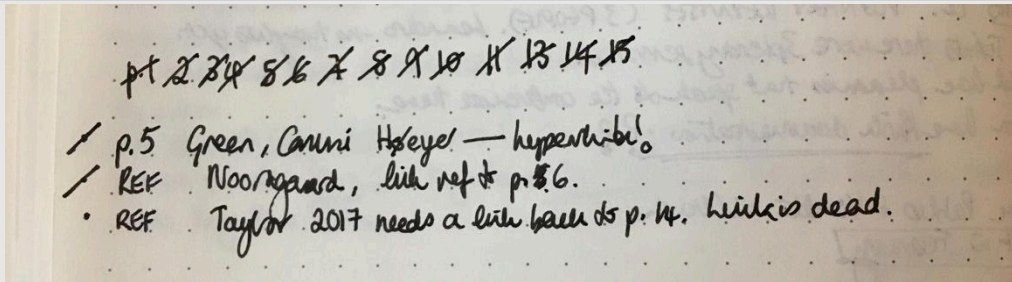 p1 2 3 4 5 6 7 8 9 10 11 13 14 15
p.5 Green, Canini Høeyer — hyperlink!
REF Noorgaard, link ref to p. 6.
• REF Taylor 2017 needs a link back to p. 14. Link is dead.